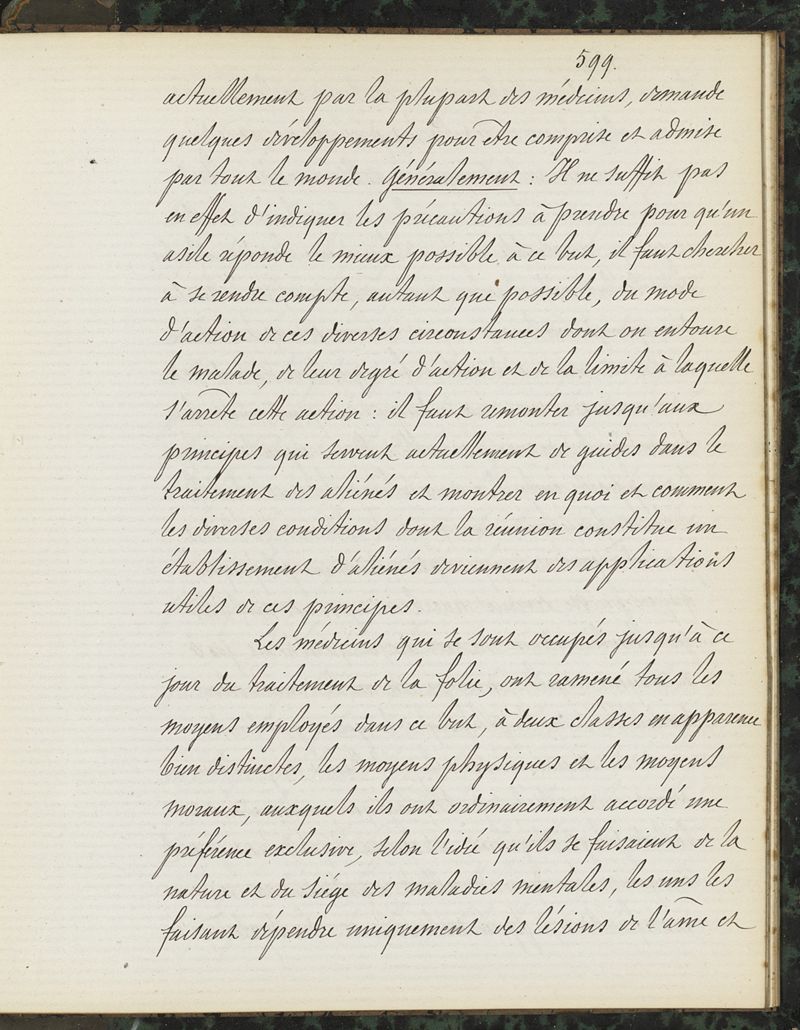 599.
actuellement par la plupart des médecins, demande
quelques développements pour être comprise et admise
par tout le monde. Généralement : Il ne suffit pas
en effet d'indiquer les précautions à prendre pour qu'un
asile réponde le mieux possible à ce but, il faut chercher
à se rendre compte, autant que possible, du mode
d'action de ces diverses circonstances dont on entoure
le malade, de leur degré d'action et de la limite à laquelle
s'arrête cette action : il faut remonter jusqu'aux
principes qui servent actuellement de guides dans le
traitement des aliénés et montrer en quoi et comment
les diverses conditions dont la réunion constitue un
établissement d'aliénés deviennent des applications
utiles de ces principes.
Les médecins qui se sont occupés jusqu'à ce
jour du traitement de la folie, ont ramené tous les
moyens employés dans ce but, à deux classes en apparence
bien distinctes, les moyens physiques et les moyens
moraux, auxquels ils ont ordinairement accordé une
préférence exclusive, selon l'idée qu'ils se faisaient de la
nature et du siége des maladies mentales, les uns les
faisant dépendre uniquement des lésions de l'âme et